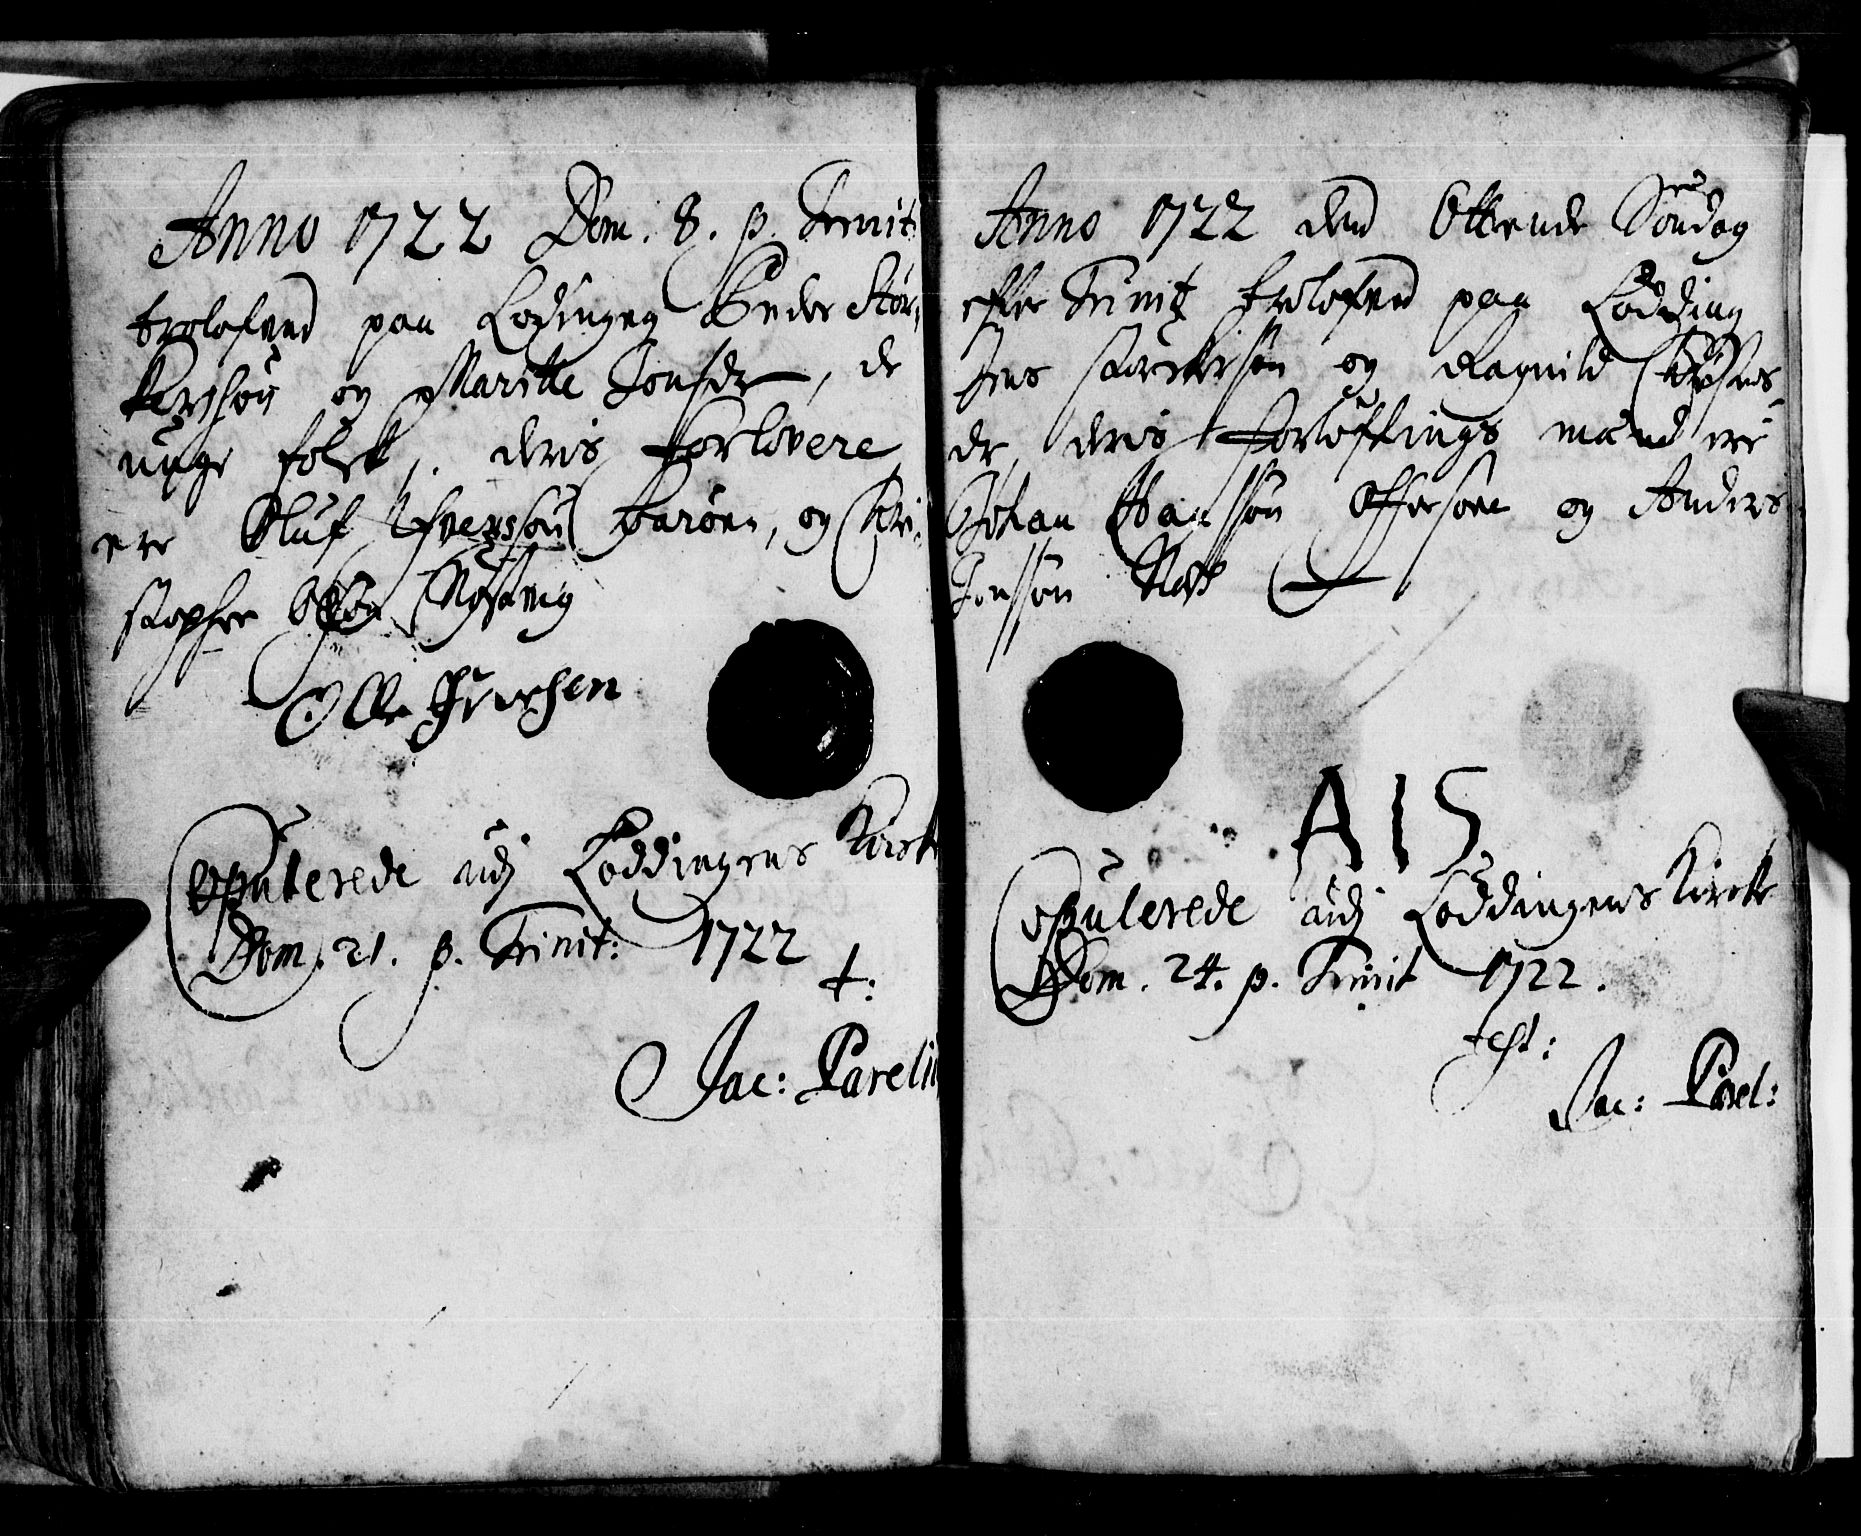 Anno 1722 Dom. 8. p. Trinit
trolofved paa Lodingeg Peder Stør-
kersøn og Maritte Jonsdr, de
unge folck, deris forlovere
ere Oluf Ifversøn Barøen, og Chri-
stopher
Olle Iversen
Copulerede udj Loddingens Kirck
Dom. 21. p. Trinit: 1722
t:
Jac: Pareliu
Anno 1722 den Ottende Søndag
effter Trinit trolofved paa Lødding
Jens størckersøn og Ragnild
dr, deris forløftnings mænd ere
Johan Hansøn Offersøen og Anders
Jonsøn
A I S
Copulerede udj Loddingens Kircke
Dom. 24. p. Trinit 1722.
test:
Jac: Parel: